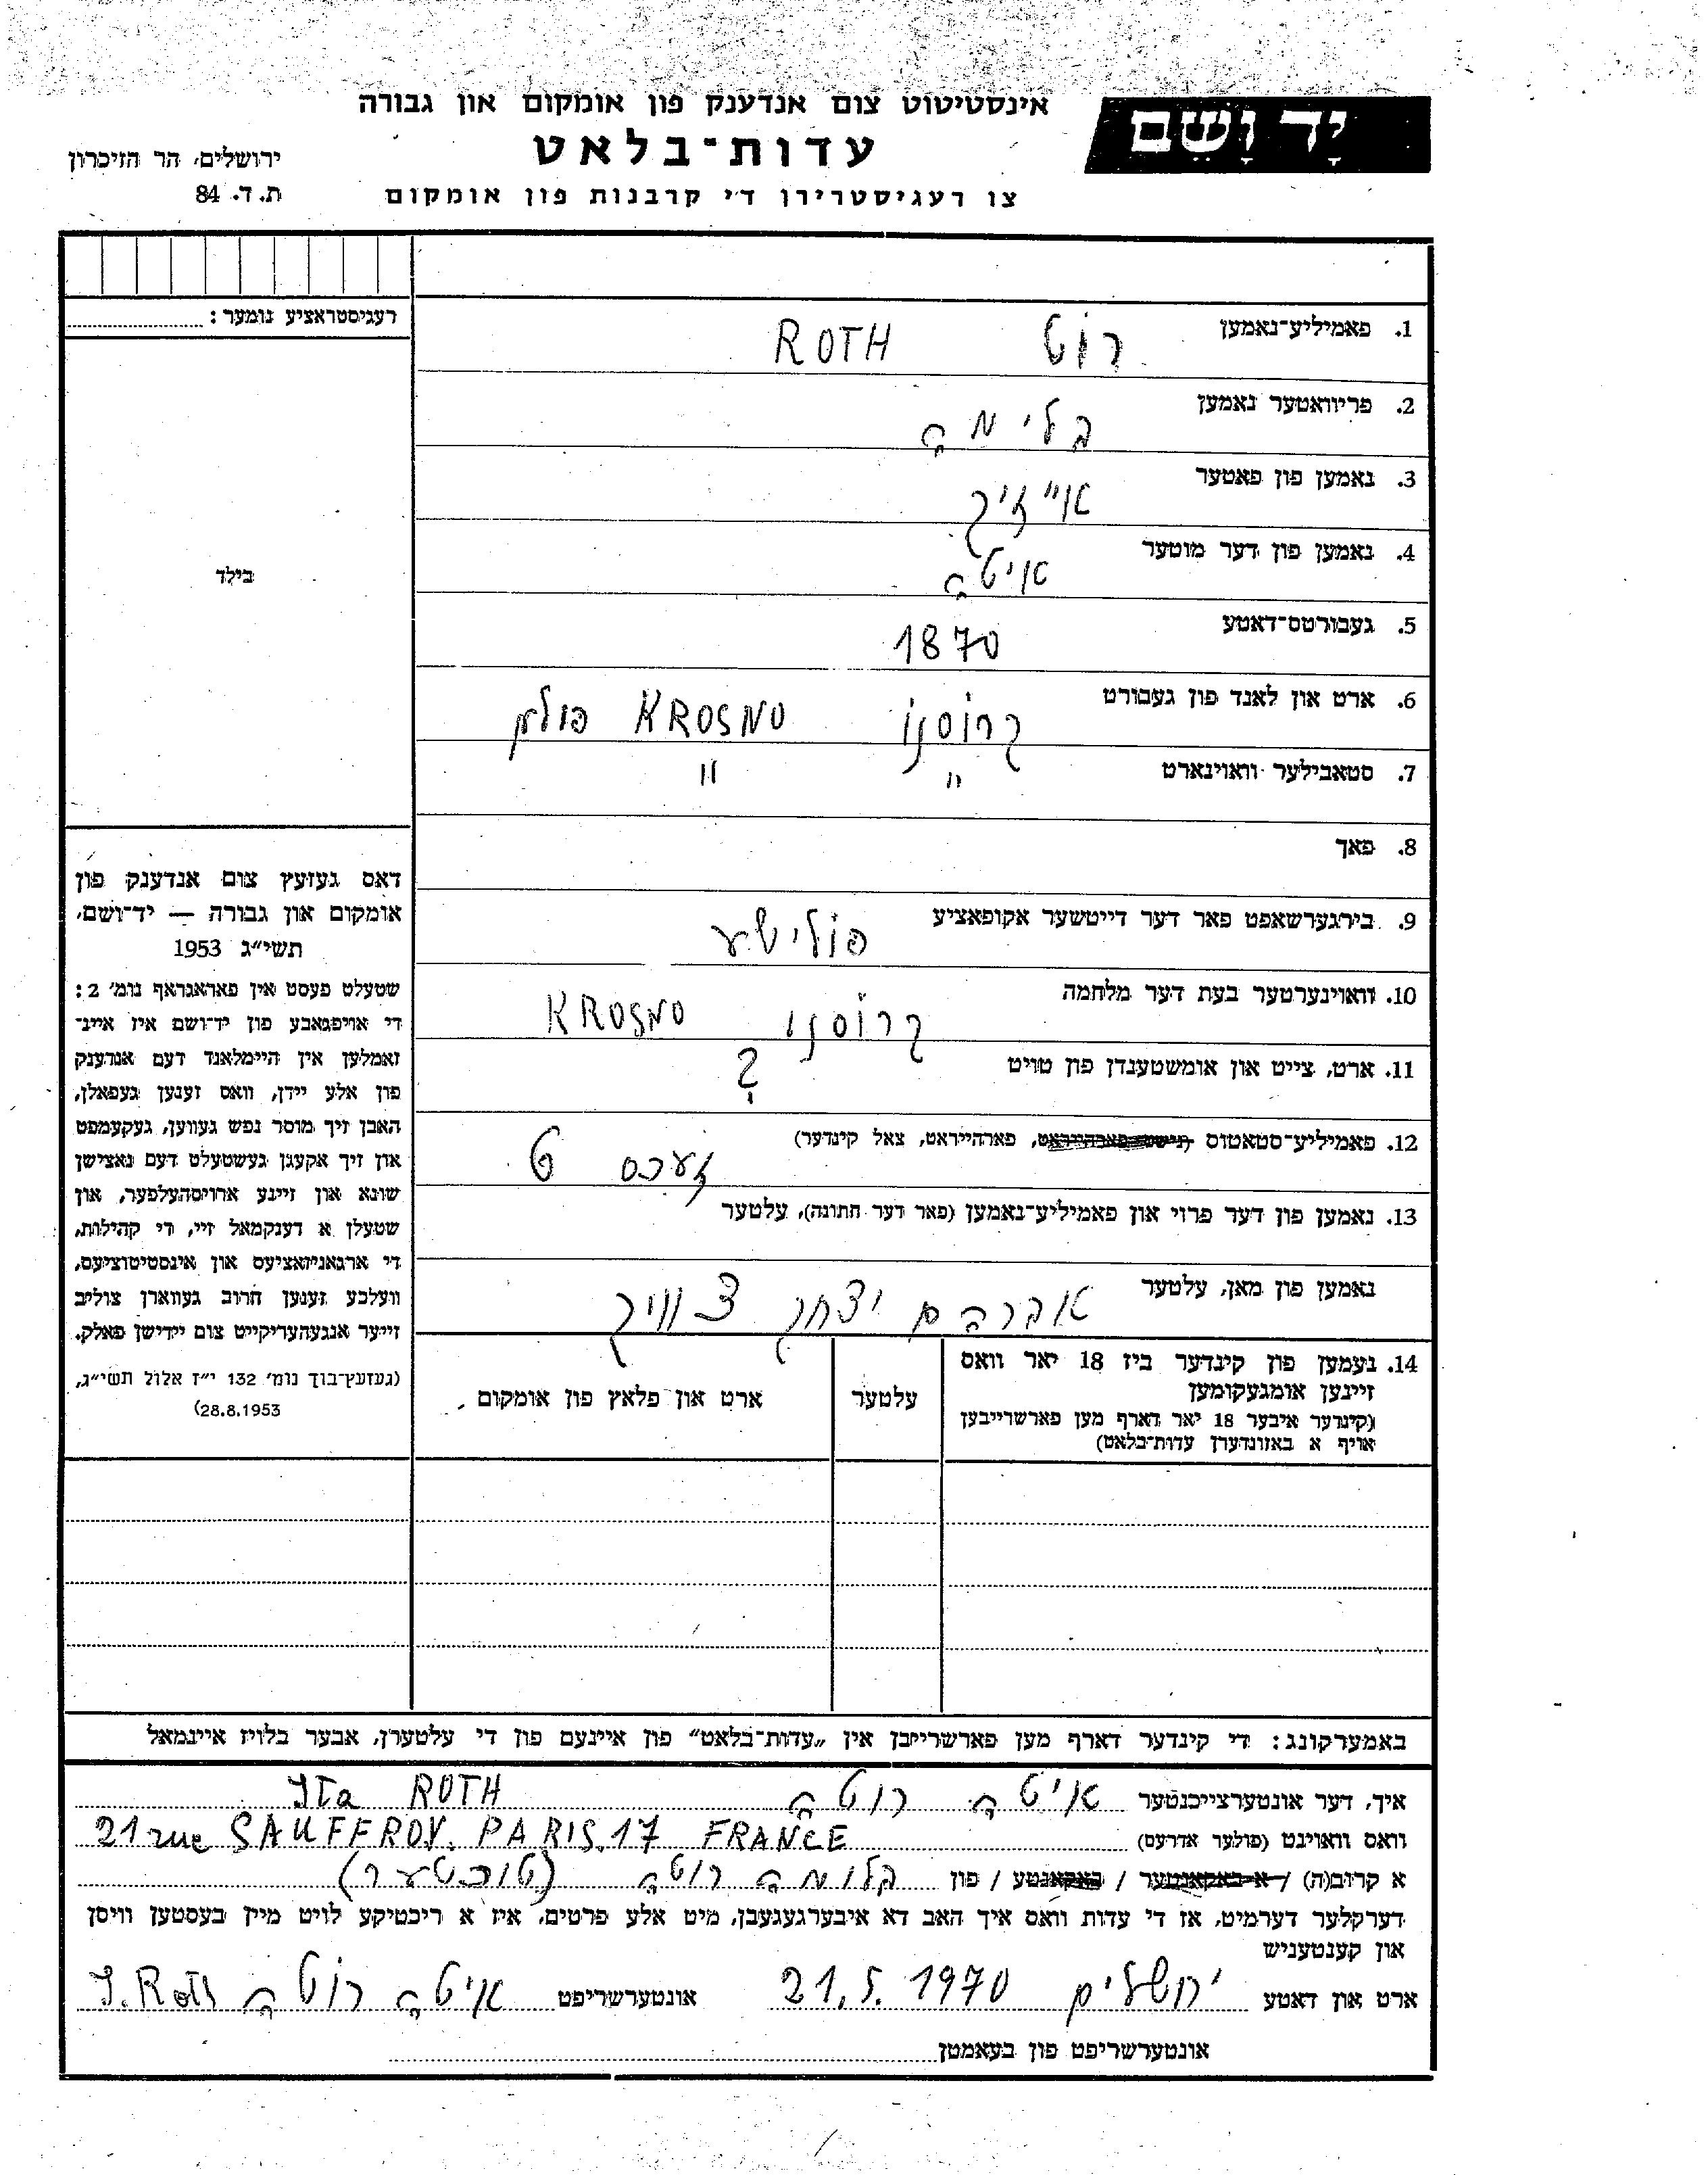 יָד וָשֵׁם
אינסטיטוט צום אנדענק פון אומקום און גבורה
עדות־בלאט
צו רעגיסטרירן די קרבנות פון אומקום
ירושלים, הר הזיכרון
ת. ד. 84
רעגיסטראציע נומער:
בילד
דאס געזעץ צום אנדענק פון
אומקום און גבורה — יד־ושם,
תשי״ג 1953
שטעלט פעסט אין פאראגראף נומ׳ 2:
די אויפגאבע פון יד־ושם איז איינ־
זאמלען אין היימלאנד דעם אנדענק
פון אלע יידן, וואס זענען געפאלן,
האבן זיך מוסר נפש געווען, געקעמפט
און זיך אקעגן געשטעלט דעם נאצישן
שונא און זיינע ארויסהעלפער, און
שטעלן א דענקמאל זיי, די קהילות,
די ארגאניזאציעס און אינסטיטוציעס,
וועלכע זענען חרוב געווארן צוליב
זייער אנגעהעריקייט צום יידישן פאלק.
(געזעץ־בוך נומ׳ 132 י״ז אלול תשי״ג,
28.8.1953)
1. פאמיליע־נאמען רוט ROTH
2. פריוואטער נאמען בלימה
3. נאמען פון פאטער אייזיק
4. נאמען פון דער מוטער איטה
5. געבורטס־דאטע 1870
6. ארט און לאנד פון געבורט קרוסנו KROSNO פולין
7. סטאבילער וואוינארט " "
8. פאך
9. בירגערשאפט פאר דער דייטשער אקופאציע פולישע
10. וואוינערטער בעת דער מלחמה קרוסנו KROSNO
11. ארט, צייט און אומשטענדן פון טויט ?
12. פאמיליע־סטאטוס (נישט פארהייראט, פארהייראט, צאל קינדער) ט
13. נאמען פון דער פרוי און פאמיליע־נאמען (פאר דער חתונה), עלטער
נאמען פון מאן, עלטער אברהם יצחק
14. נעמען פון קינדער ביז 18 יאר וואס
זיינען אומגעקומען
(קינדער איבער 18 יאר דארף מען פארשרייבען
אויף א באזונדערן עדות־בלאט)
עלטער
ארט און פלאץ פון אומקום
באמערקונג: די קינדער דארף מען פארשרייבן אין „עדות־בלאט" פון איינעם פון די עלטערן, אבער בלויז איינמאל
איך, דער אונטערצייכנטער איטה רוטה Ita ROTH
וואס וואוינט (פולער אדרעס) 21 rue SAUFFROY. PARIS.17 FRANCE
א קרוב(ה) / א באקאנטער / באקאנטע / פון בלומה רוטה (טוכטער)
דערקלער דערמיט, אז די עדות וואס איך האב דא איבערגעגעבן, מיט אלע פרטים, איז א ריכטיקע לויט מיין בעסטען וויסן
און קענטעניש
ארט און דאטע ירושלים 21.5.1970 אונטערשריפט איטה רוטה I. Roth
אונטערשריפט פון בעאמטן